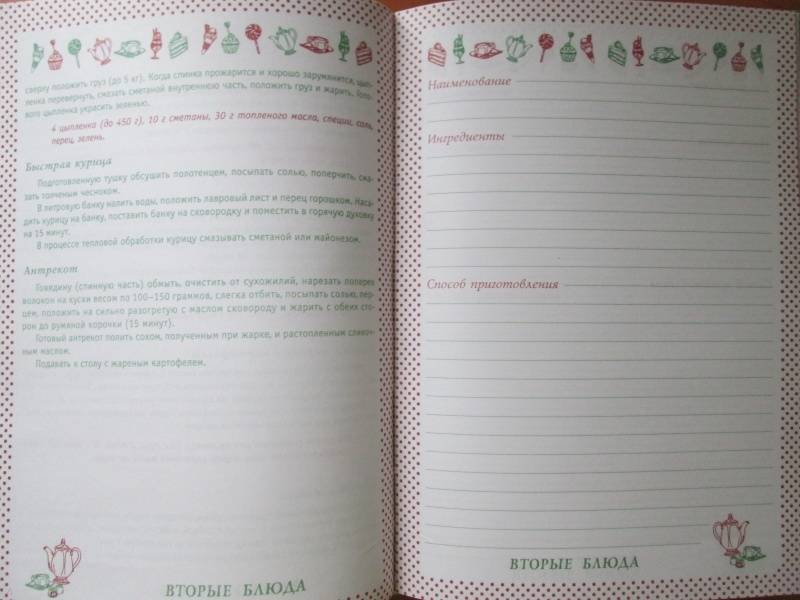 сверху положить груз (до 5 кг). Когда спинка прожарится и хорошо зарумянится, цып-
ленка перевернуть, смазать сметаной внутреннюю часть, положить груз и жарить. Гото-
вого цыпленка украсить зеленью.
4 цыпленка (до 450 г), 10 г сметаны, 30 г топленого масла, специи, соль,
перец, зелень.
Быстрая курица
Подготовленную тушку обсушить полотенцем, посыпать солью, поперчить, сма-
зать толченым чесноком.
В литровую банку налить воды, положить лавровый лист и перец горошком. Наса-
дить курицу на банку, поставить банку на сковородку и поместить в горячую духовку
на 15 минут.
В процессе тепловой обработки курицу смазывать сметаной или майонезом.
Антрекот
Говядину (спинную часть) обмыть, очистить от сухожилий, нарезать поперек
волокон на куски весом по 100–150 граммов, слегка отбить, посыпать солью, пер-
цем, положить на сильно разогретую с маслом сковороду и жарить с обеих сто-
рон до румяной корочки (15 минут).
Готовый антрекот полить соком, полученным при жарке, и растопленным сливоч-
ным маслом.
Подавать к столу с жареным картофелем.
ВТОРЫЕ БЛЮДА
Наименование
Ингредиенты
Способ приготовления
ВТОРЫЕ БЛЮДА